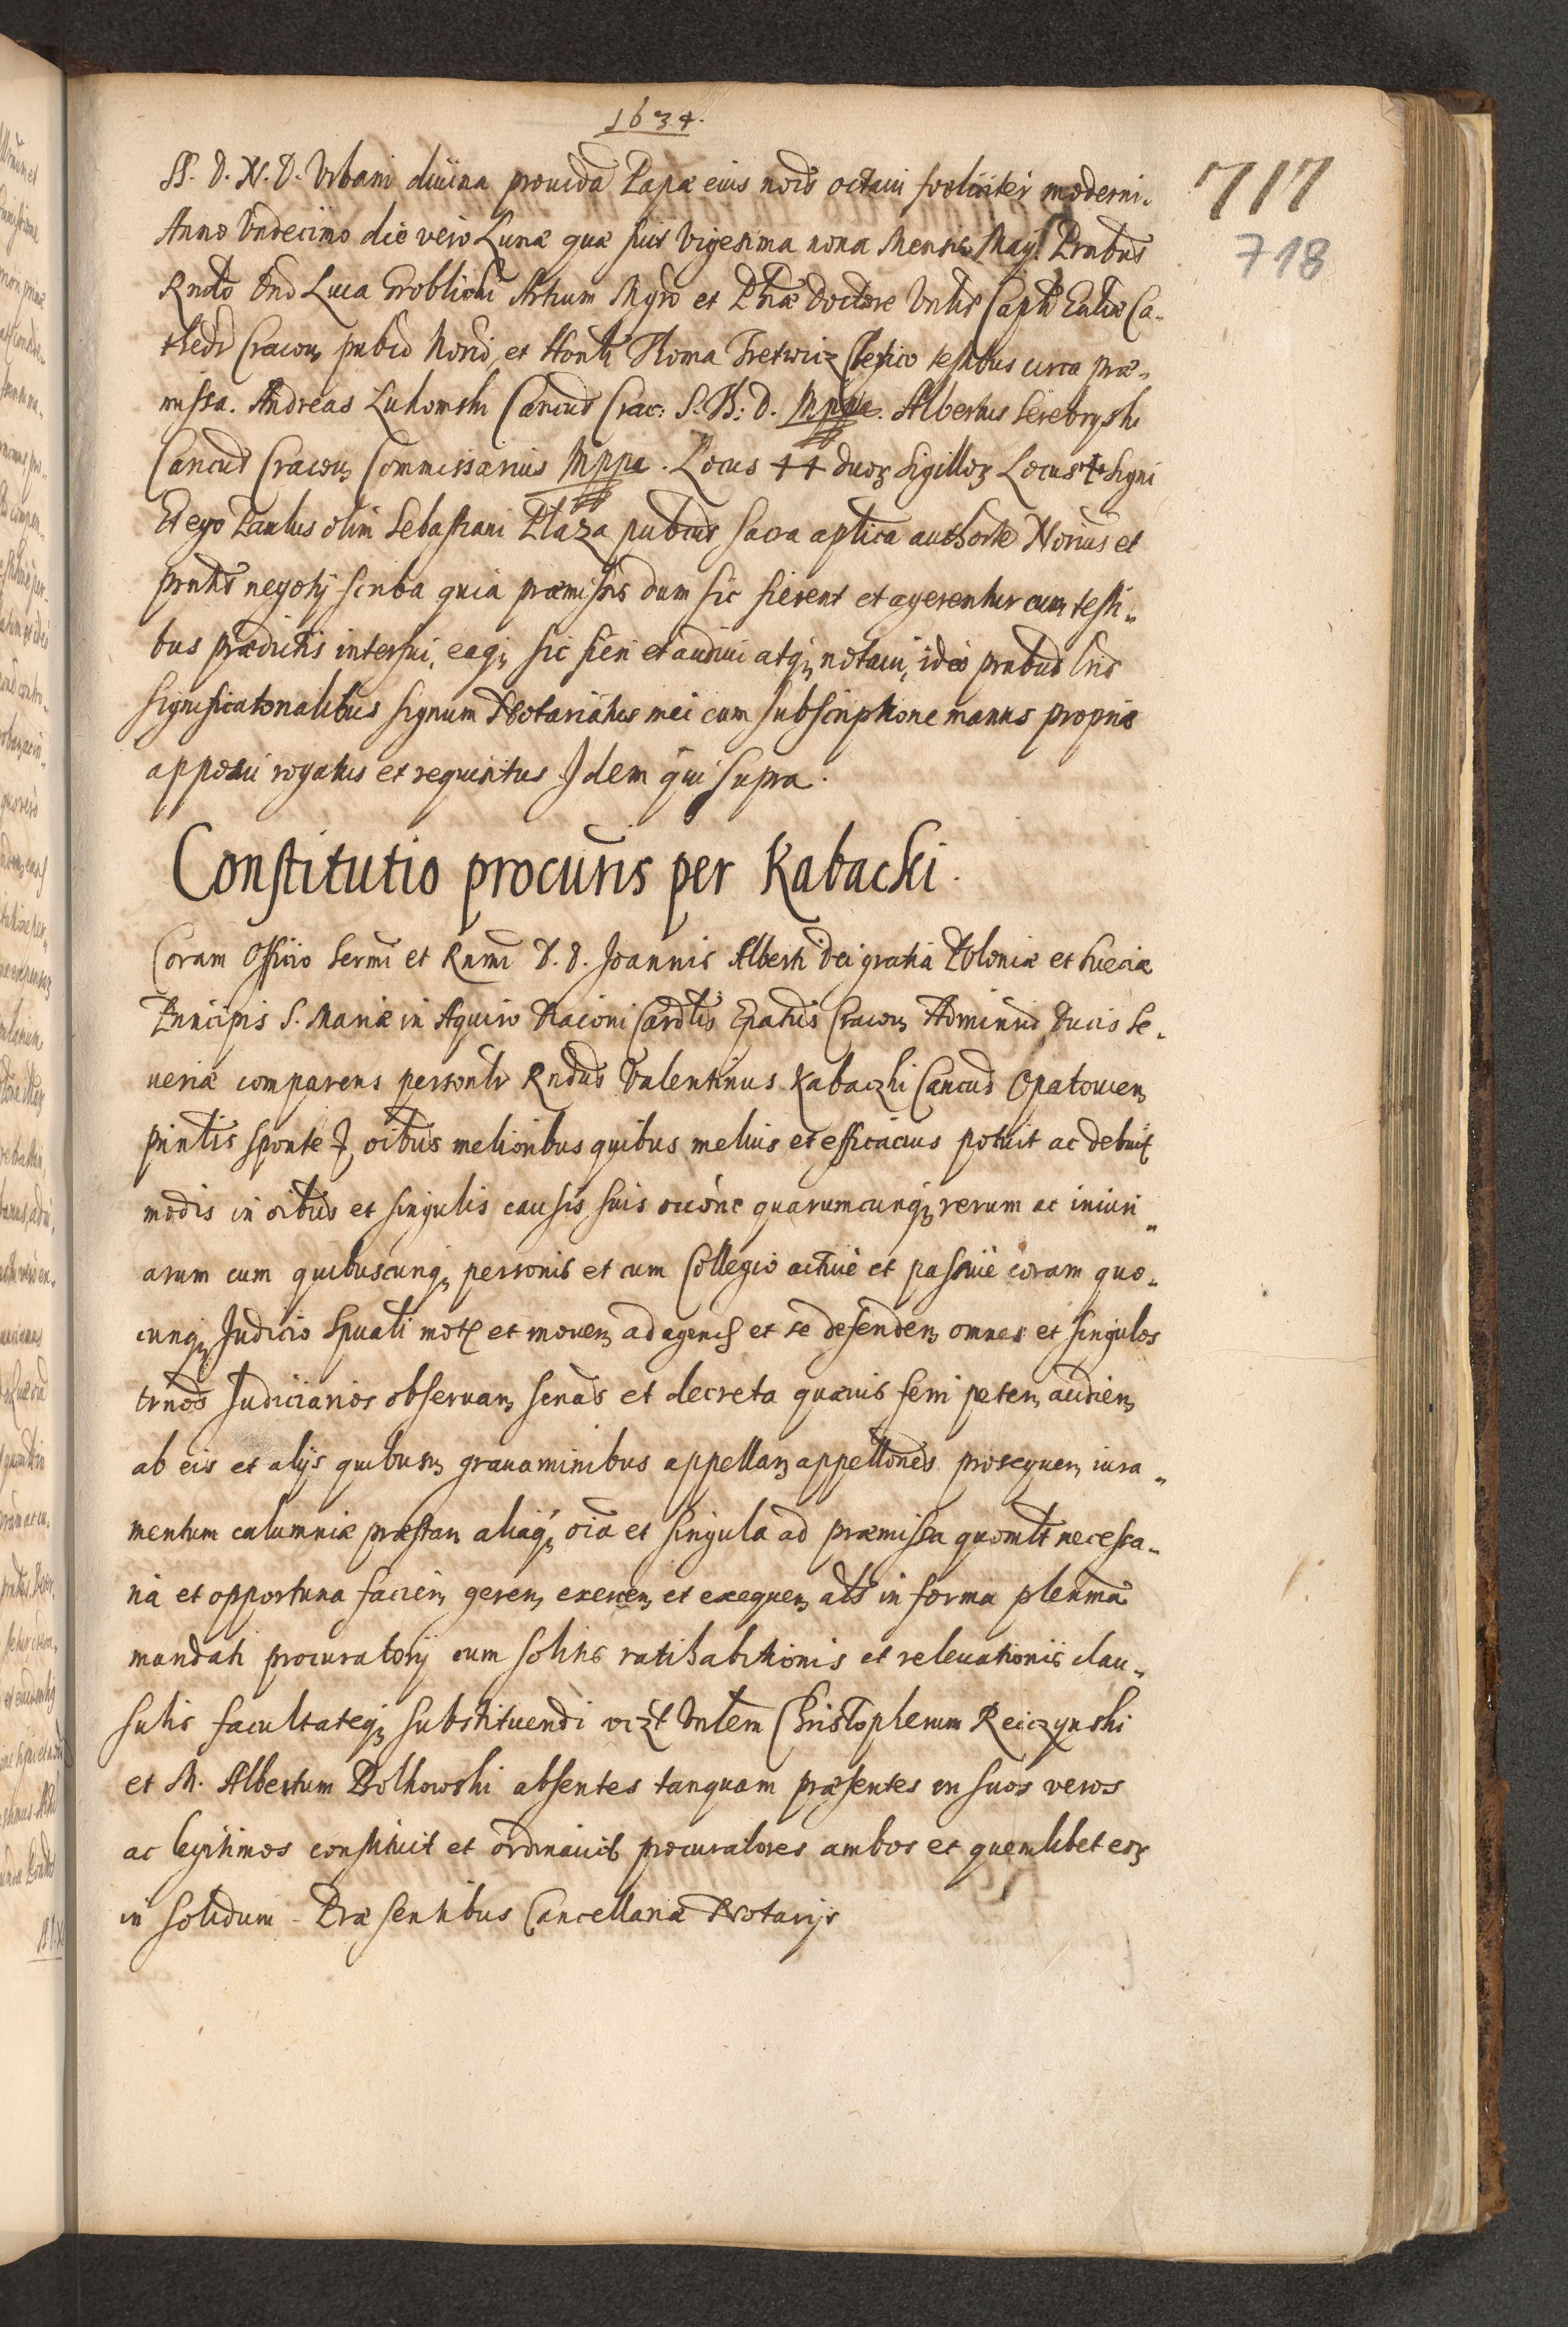 1634.
717
718
SS. D. N. D. Vrbani diuina prouida Papæ eius nois octaui foeliciter moderni.
Anno Vndecimo die vero Lunæ quæ fuit Vigesima nona Mensis Maÿ. Pntbus
Rndo Dno Luca Groblicki Artium Mgro et Phiæ Doctore Vnlis Capli Ecliæ Ca-
thedr Cracou publico Norio, et Honli Thoma Tretwicz Clerico testibus circa præ-
missa. Andreas Lukomski Cancus Crac: S. B: D. Mppa. Albertus Serebryski
Cancus Cracou Commissarius Mppa. Locus ++ duoꝝ sigilloꝝ Locus + signi
Et ego Paulus olim Sebastiani Plaza publicus sacra aplica authorte Norius et
pntis negotÿ scriba quia præmissis dum sic fierent et agerentur cum testi-
bus prædictis interfui, eaqꝫ sic fieri et audiui atqꝫ notaui, ideo pntbus lris
significatorialibus signum Notariatus mei cum subscriptione manus propriæ
apposui rogatus et requisitus Idem qui supra.
Constitutio procuris per Kabacki.
Coram Officio Sermi et Rnmi D. D. Joannis Alberti Dei gratia Poloniæ et Sueciæ
Principis S. Mariæ in Aquiro Diaconi Cardlis Epatus Cracou Adminris Ducis Se-
ueriæ comparens personlr Rndus Valentinus Kabaczki Cancus Opatouien
pintis sponte &, oibus melioribus quibus melius et efficacius potuit ac debuit
modis in oibus et singulis causis suis occone quarumcunqꝫ rerum ac iniuri-
arum cum quibuscunqꝫ personis et cum Collegio actiue et passiue coram quo-
cunqꝫ Judicio Spuali mot et mouen ad agend et se defenden omnes et singulos
trnos Judiciarios obseruan senas et decreta quæuis ferri peten audien
ab eis et alÿs quibusuis grauaminibus appellan appellones prosequen iura-
mentum calumniæ præstan aliaqꝫ oia et singula ad præmissa quomlt necessa-
ria et opportuna facien geren exercen et exequen als in forma plenma
mandati procuratorÿ cum solitis ratihabitionis et releuationis clau-
sulis facultateqꝫ substituendi vizt Vnlem Christopherum Reiczynski
et M. Albertum Bolkowski absentes tanquam præsentes in suos veros
ac legitimos constituit et ordinauit procuratores ambos et quemlibet eoꝝ
in solidum - Præsentibus Cancellariæ Notarÿs